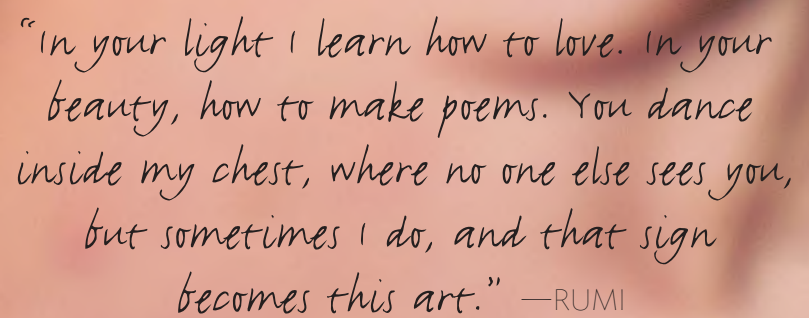 “In your light I learn how to love. In your
beauty, how to make poems. You dance
inside my chest, where no one else sees you,
but sometimes I do, and that sign
becomes this art.” —RUMI